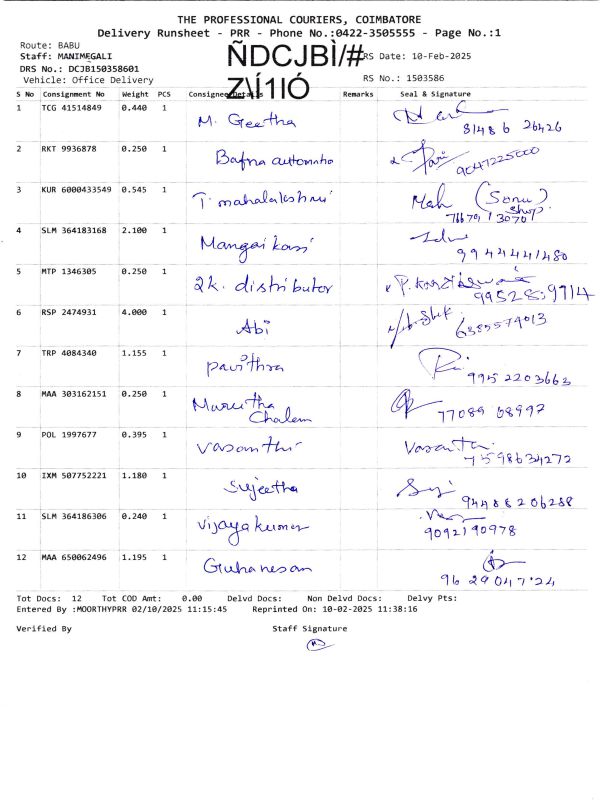 THE PROFESSIONAL COURIERS, COIMBATORE
Delivery Runsheet - PRR - Phone No.:0422-3505555 - Page No.:1
Route: BABU
Staff: MANIMEGALI
ÑDCJBÌ/#
RS Date: 10-Feb-2025
DRS No.: DCJB150358601
Vehicle: Office Delivery
RS No.: 1503586
S No Consignment No Weight PCS Consignee Details Remarks Seal & Signature
1 TCG 41514849 0.440 1 M. Geetha
81486 26426
2 RKT 9936878 0.250 1 Bafna automatio
9047225000
3 KUR 6000433549 0.545 1 T. mahalakshmi Mah (Sonu)
shop
4 SLM 364183168 2.100 1 Mangaikasi
9944441480
5 MTP 1346305 0.250 1 2k. distributor
6 RSP 2474931 4.000 1 Abi
6385574013
7 TRP 4084340 1.155 1 pavithra
9952203663
8 MAA 303162151 0.250 1 Marutha
Chalem
77089 08997
9 POL 1997677 0.395 1 vasanthi Vasanta
7598634272
10 IXM 507752221 1.180 1 Sujeetha
94488 206288
11 SLM 364186306 0.240 1 vijayakumar
9092190978
12 MAA 650062496 1.195 1 Guhanesan
96 29 047 24
Tot Docs: 12 Tot COD Amt: 0.00 Delvd Docs: Non Delvd Docs: Delvy Pts:
Entered By :MOORTHYPRR 02/10/2025 11:15:45 Reprinted On: 10-02-2025 11:38:16
Verified By Staff Signature